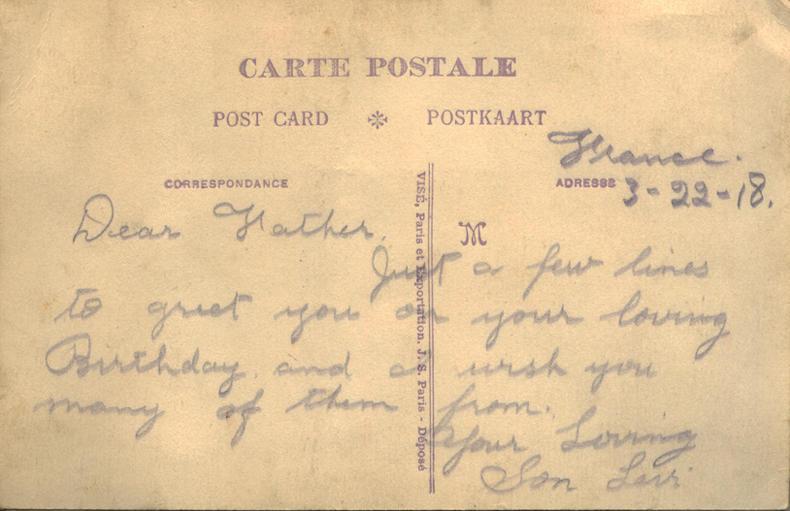 CARTE POSTALE
POST CARD ✻ POSTKAART
France.
CORRESPONDANCE
ADRESSE 3-22-18.
Dear Father.
M
Just a few lines
to greet you on your loving
Birthday. and a wish you
many of them from.
Your Loving
Son Levi
VISÉ, Paris et Exportation. J. S. Paris - Déposé